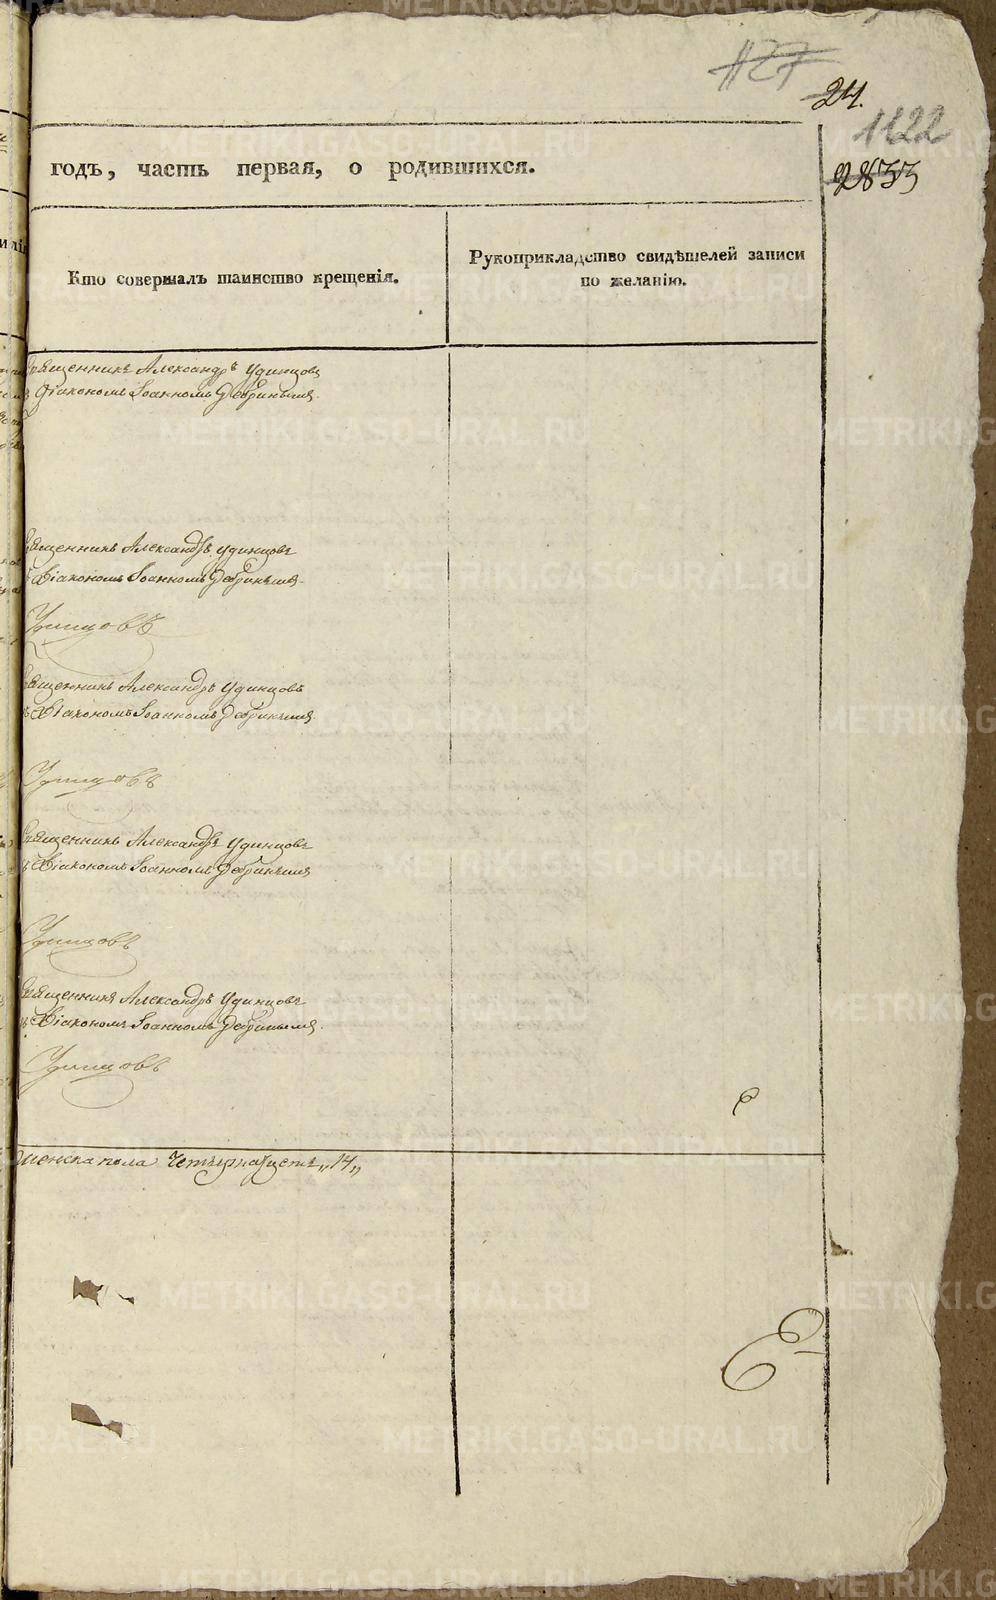 1127
24.
1122
2833
годъ, часть первая, о родившихся.
Кто совершалъ таинство крещенія.
Рукоприкладство свидѣтелей записи
по желанію.
Священникъ Александръ Удинцовъ
съ Діакономъ Іоанномъ
Священникъ Александръ Удинцовъ
съ Діакономъ Іоанномъ
Удинцовъ
Священникъ Александръ Удинцовъ
съ Діакономъ Іоанномъ
Удинцовъ
Священникъ Александръ Удинцовъ
съ Діакономъ Іоанномъ
Удинцовъ
Священникъ Александръ Удинцовъ
съ Діакономъ Іоанномъ
Удинцовъ
женска пола Четырнадцеть „14„
METRIKI.GASO-URAL.RU